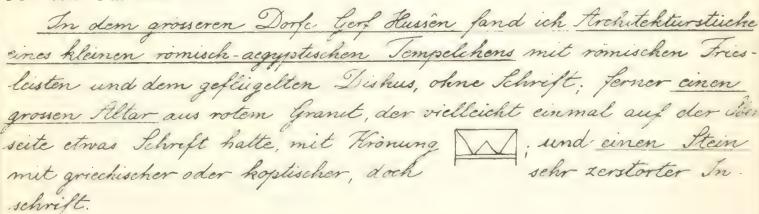 In dem grösseren Dorfe Gerf Hussên fand ich Architekturstücke
eines kleinen römisch-aegyptischen Tempelchens mit römischen Fries-
leisten und dem geflügelten Diskus, ohne Schrift; ferner einen
grossen Altar aus rotem Granit, der vielleicht einmal auf der Ober
seite etwas Schrift hatte, mit Krönung ; und einen Stein
mit griechischer oder koptischer, doch sehr zerstörter In-
schrift.